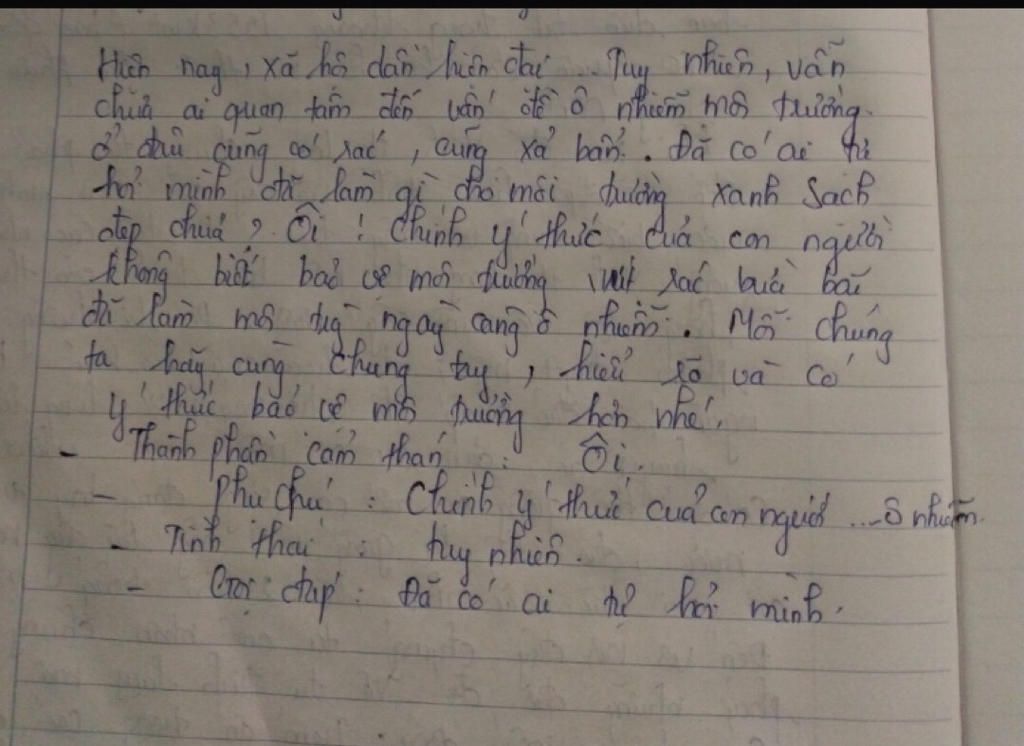 Hiên nay, xã hô dần hiên đai. Tuy nhiên, vẫn
chưa ai quan tâm đến vấn đề ô nhiễm môi trường.
ở đâu cũng có rác, cũng xả bẩn. Đã có ai tự
hỏi mình đã làm gì cho môi trường xanh sach
đẹp chưa? Ôi! Chính ý thức của con người
không biết bảo vê môi trường, vứt rác bừa bãi
đã làm mô trg ngay càng ô nhiễm. Mỗi chúng
ta hãy cùng chung tay, hiểu rõ và có
ý thức bảo vê môi trường hơn nhé.
- Thành phần cảm thán : Ôi.
- Phu chú : Chính ý thức của con người ... ô nhiễm.
- Tình thái : tuy nhiên.
- Goi đáp : Đã có ai tự hỏi mình.